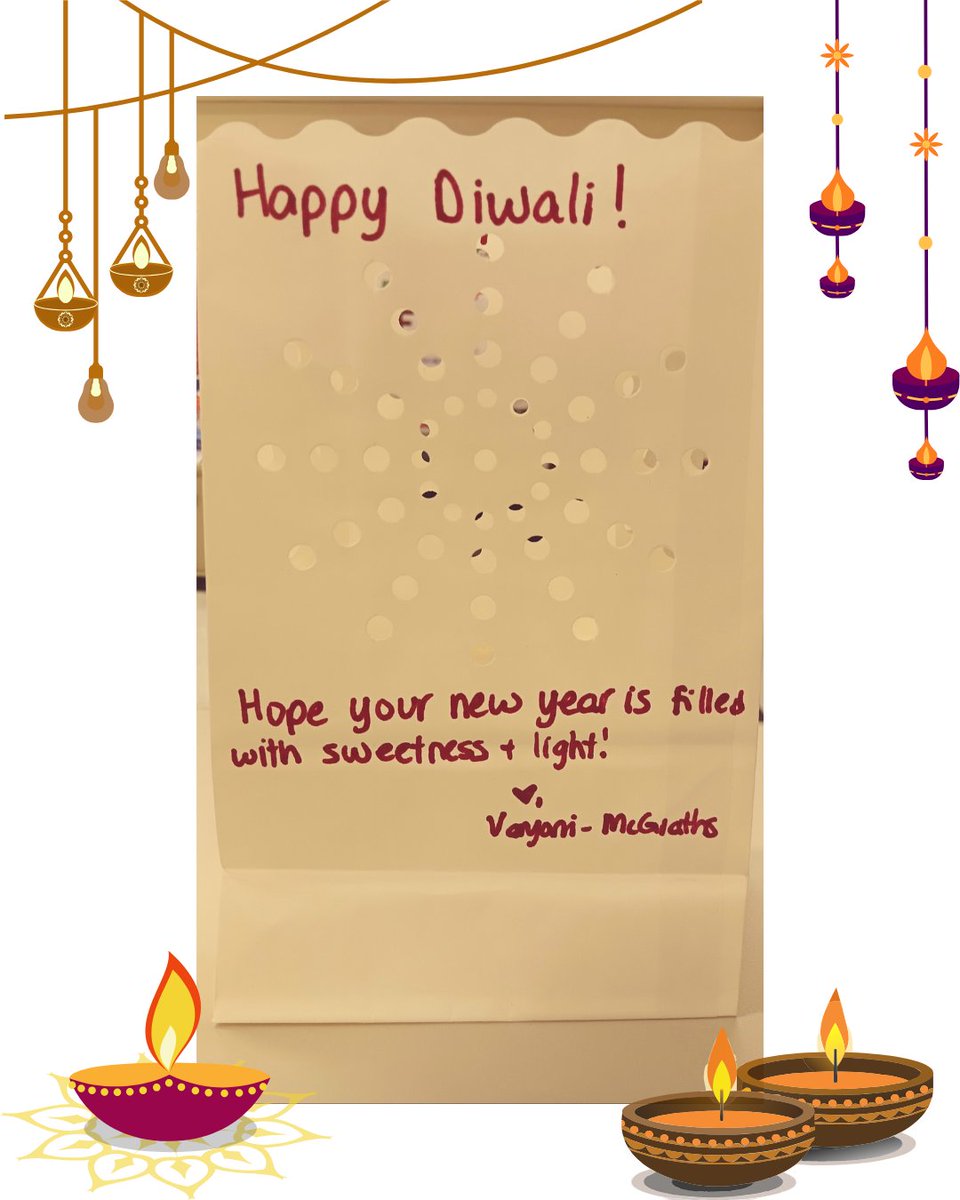 Happy Diwali!
Hope your new year is filled
with sweetness + light!
♥,
Vayani-McGraths